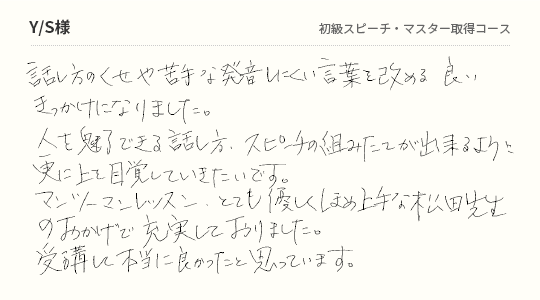 Y/S様
初級スピーチ・マスター取得コース
話し方のくせや苦手な発音しにくい言葉を改める 良い
きっかけになりました。
人を魅了できる話し方、スピーチの組みたてが出来るようと
実に上を目覚していきたいです。
マンツーマンレッスン、とても優しくほめ上手な松田先生
のおかげで充実しておりました。
受講して本当に良かったと思っています。